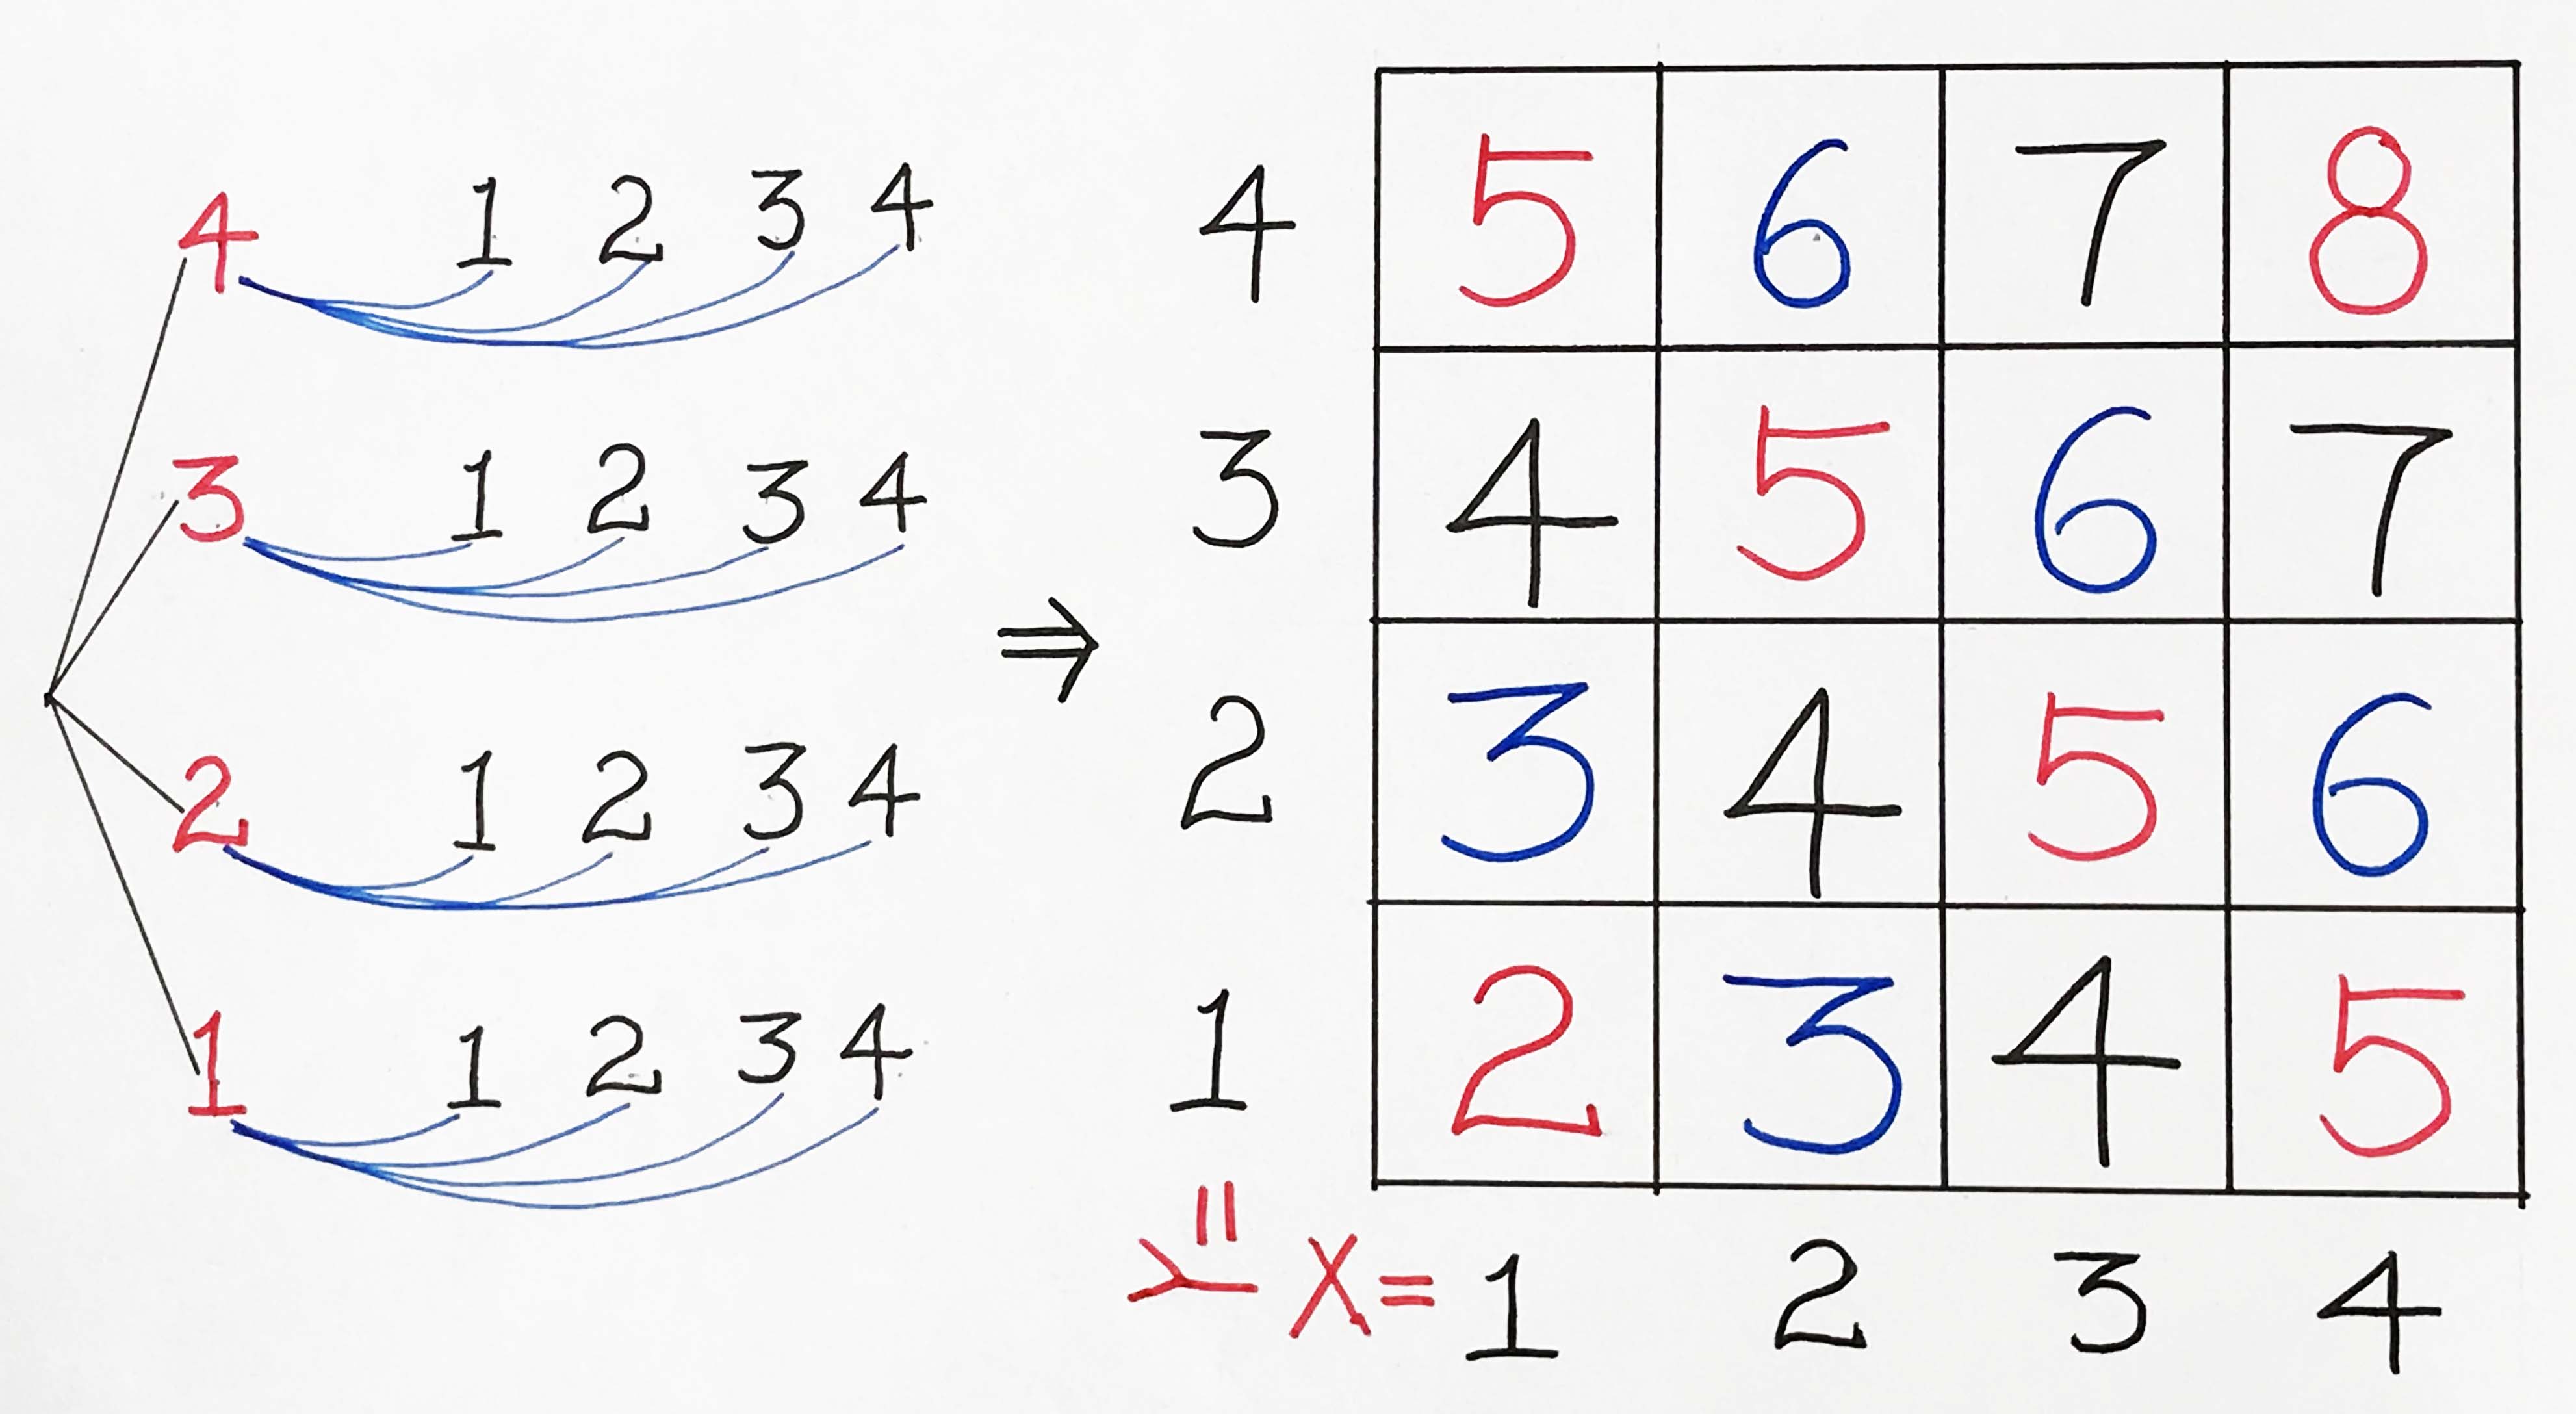 4 1 2 3 4
3 1 2 3 4
2 1 2 3 4
1 1 2 3 4
⇒
4 5 6 7 8
3 4 5 6 7
2 3 4 5 6
1 2 3 4 5
Y= X= 1 2 3 4